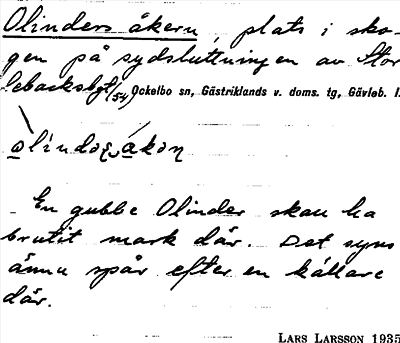 Olinders åkern, plats i sko-
gen på sydsluttningen av Stor
lebacksbgt (54) Ockelbo sn, Gästriklands v. doms. tg, Gävleb. l.
En gubbe Olinder skau ha
brutit mark där. Det syns
ännu spår efter en kållare
där.
LARS LARSSON 1935